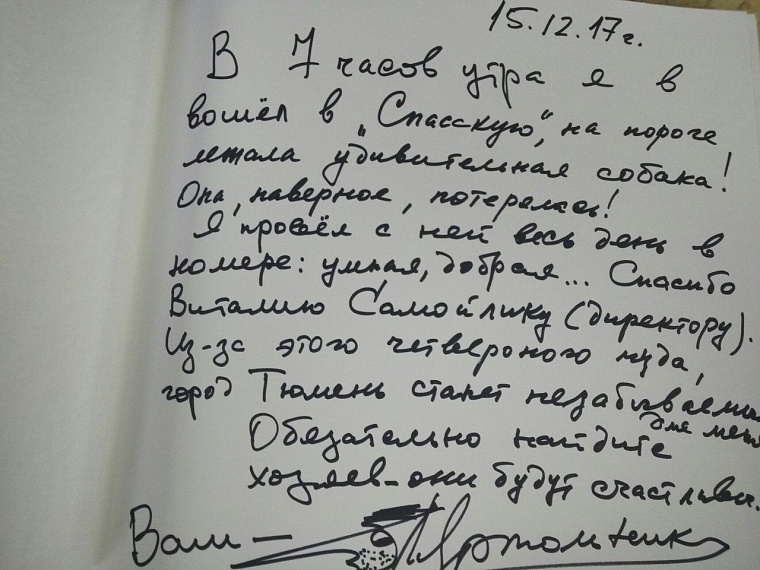 15.12.17г.
В 7 часов утра я в
вошёл в „Спасскую", на пороге
лежала удивительная собака!
Она, наверное, потерялась!
Я провёл с ней весь день в
номере: умная, добрая... Спасибо
Виталию Самойлику (директору).
Из-за этого четвероного чуда,
город Тюмень станет незабываемым
для меня
Обязательно найдите
хозяев-они будут счастливы.
Ваш –